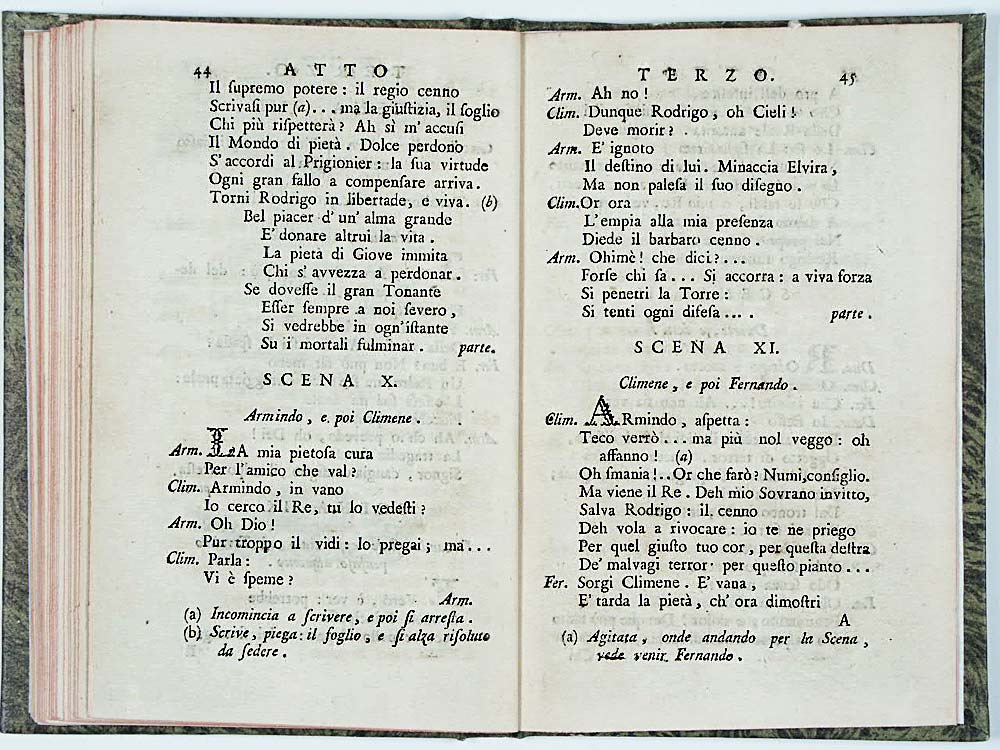 44 ATTO
Il ſupremo potere : il regio cenno
Scrivaſi pur (a)... ma la giuſtizia, il ſoglio
Chi più riſpetterà? Ah sì m'accuſi
Il Mondo di pietà. Dolce perdono
S'accordi al Prigionier : la ſua virtude
Ogni gran fallo a compenſare arriva.
Torni Rodrigo in libertade, e viva. (b)
Bel piacer d'un'alma grande
E' donare altrui la vita.
La pietà di Giove immita
Chi s'avvezza a perdonar.
Se doveſſe il gran Tonante
Eſſer ſempre a noi ſevero,
Si vedrebbe in ogn'iſtante
Su i mortali fulminar. parte.
SCENA X.
Armindo, e poi Climene.
Arm. LA mia pietoſa cura
Per l'amico che val?
Clim. Armindo, in vano
Io cerco il Re, tu lo vedeſti?
Arm. Oh Dio!
Pur troppo il vidi : lo pregai; ma...
Clim. Parla :
Vi è ſpeme?
Arm.
(a) Incomincia a ſcrivere, e poi ſi arreſta.
(b) Scrive, piega il foglio, e ſi alza riſoluto
da ſedere.
TERZO. 45
Arm. Ah no!
Clim. Dunque Rodrigo, oh Cieli!
Deve morir?
Arm. E' ignoto
Il deſtino di lui. Minaccia Elvira,
Ma non paleſa il ſuo diſegno.
Clim. Or ora
L'empia alla mia preſenza
Diede il barbaro cenno.
Arm. Ohimè! che dici?...
Forſe chi ſa... Si accorra : a viva forza
Si penetri la Torre :
Si tenti ogni difeſa.... parte.
SCENA XI.
Climene, e poi Fernando.
Clim. ARmindo, aſpetta :
Teco verrò... ma più nol veggo : oh
affanno! (a)
Oh ſmania!.. Or che farò? Numi, conſiglio.
Ma viene il Re. Deh mio Sovrano invitto,
Salva Rodrigo : il cenno
Deh vola a rivocare : io te ne priego
Per quel giuſto tuo cor, per queſta deſtra
De' malvagi terror per queſto pianto...
Fer. Sorgi Climene. E' vana,
E' tarda la pietà, ch'ora dimoſtri
A
(a) Agitata, onde andando per la Scena,
vede venir Fernando.